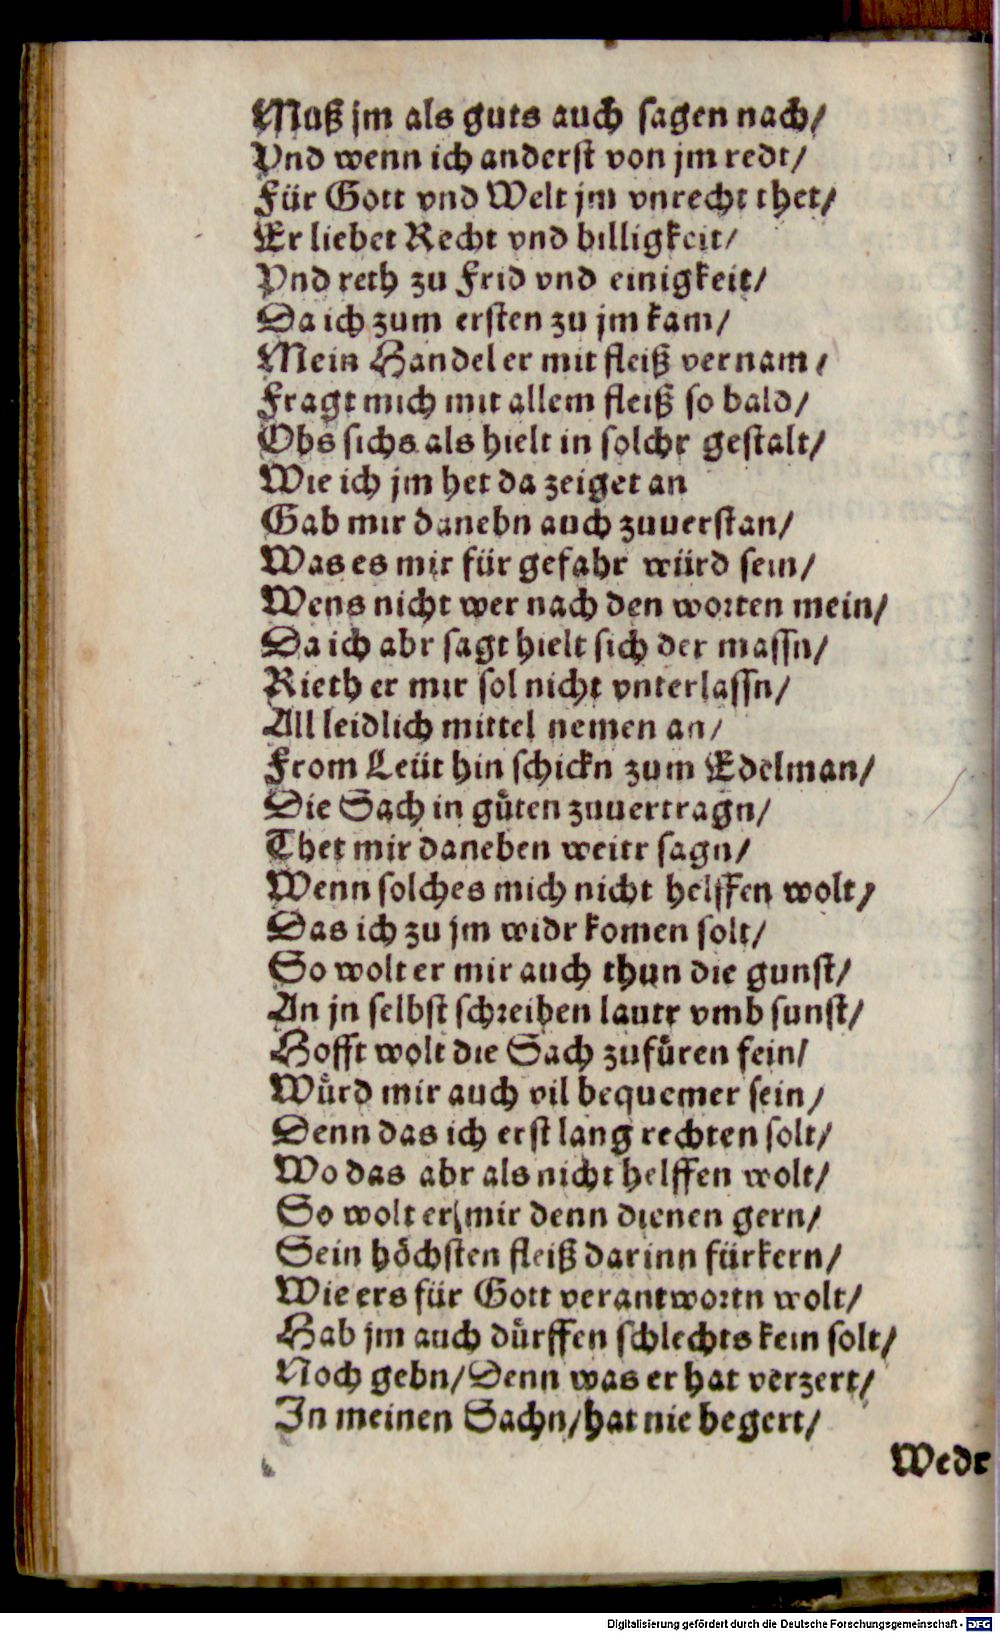 Muß jm als guts auch sagen nach/
Vnd wenn ich anderst von jm redt/
Für Gott vnd Welt jm vnrecht thet/
Er liebet Recht vnd billigkeit/
Vnd reth zu Frid vnd einigkeit/
Da ich zum ersten zu jm kam/
Mein Handel er mit fleiß vernam/
Fragt mich mit allem fleiß so bald/
Obs sichs als hielt in solchr gestalt/
Wie ich jm het da zeiget an
Gab mir danebn auch zuuerstan/
Was es mir für gefahr würd sein/
Wens nicht wer nach den worten mein/
Da ich abr sagt hielt sich der massn/
Rieth er mir sol nicht vnterlassn/
All leidlich mittel nemen an/
From Leüt hin schickn zum Edelman/
Die Sach in guͤten zuuertragn/
Thet mir daneben weitr sagn/
Wenn solches mich nicht helffen wolt/
Das ich zu jm widr komen solt/
So wolt er mir auch thun die gunst/
An jn selbst schreiben lautr vmb sunst/
Hofft wolt die Sach zufuͤren fein/
Wuͤrd mir auch vil bequemer sein/
Denn das ich erst lang rechten solt/
Wo das abr als nicht helffen wolt/
So wolt er mir denn dienen gern/
Sein hoͤchsten fleiß darinn fürkern/
Wie ers für Gott verantwortn wolt/
Hab jm auch duͤrffen schlechts kein solt/
Noch gebn/Denn was er hat verzert/
In meinen Sachn/hat nie begert/
Wedr
Digitalisierung gefördert durch die Deutsche Forschungsgemeinschaft - DFG